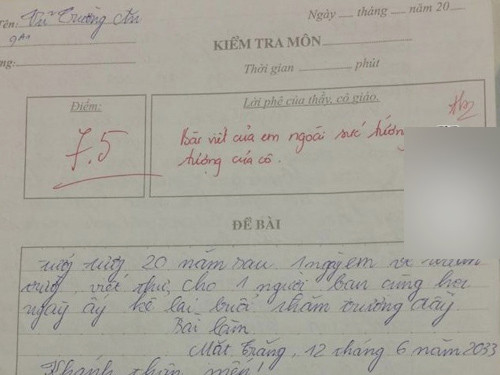 Tên: Vũ Trường An
9A1
Ngày tháng năm 20
KIỂM TRA MÔN
Thời gian phút
Điểm:
7.5
Lời phê của thầy, cô giáo.
Bài viết của em ngoài sức tưởng
tượng của cô.
ĐỀ BÀI
20 năm sau 1 ngày em về
viết thư cho 1 người bạn cùng học
ngày ấy kể lại buổi thăm trường đầy
Bài làm
Mặt Trăng, 12 tháng 6 năm 2033
Khánh thân mến!